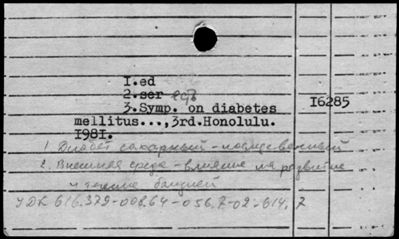 1.ed
2.ser
3.Symp. on diabetes
I6285
mellitus...,3rd.Honolulu.
I98I.
1. Диабет сахарный - наследственный
2. Внешняя среда - влияние на развитие
и течение болезней
УДК 616.379-008.64-056.7-02-614.7